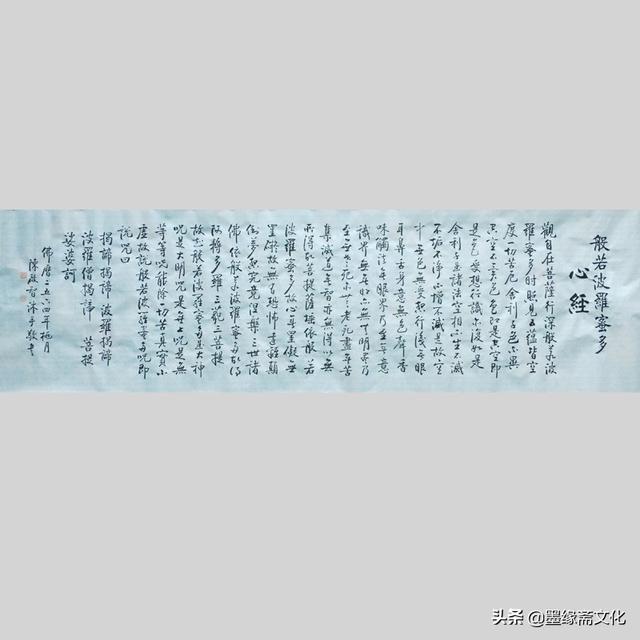 般若波羅蜜多
心経
觀自在菩薩行深般若波
羅蜜多時照見五蘊皆空
度一切苦厄舍利子色不異
空空不異色色即是空空即
是色受想行識亦復如是
舍利子是諸法空相不生不滅
不垢不淨不增不減是故空
中無色無受想行識無眼
耳鼻舌身意無色聲香
味觸法無眼界乃至無意
識界無無明亦無無明盡乃
至無老死亦無老死盡無苦
集滅道無智亦無得以無
所得故菩提薩埵依般若
波羅蜜多故心無罣礙無
罣礙故無有恐怖遠離顛
倒夢想究竟涅槃三世諸
佛依般若波羅蜜多故得
阿耨多羅三藐三菩提
故知般若波羅蜜多是大神
咒是大明咒是無上咒是無
等等咒能除一切苦真實不
虛故說般若波羅蜜多咒即
說咒曰
揭諦揭諦 波羅揭諦
波羅僧揭諦 菩提
娑婆訶
佛曆二五六四年桃月
陳 沐手敬書
头条 @墨缘斋文化